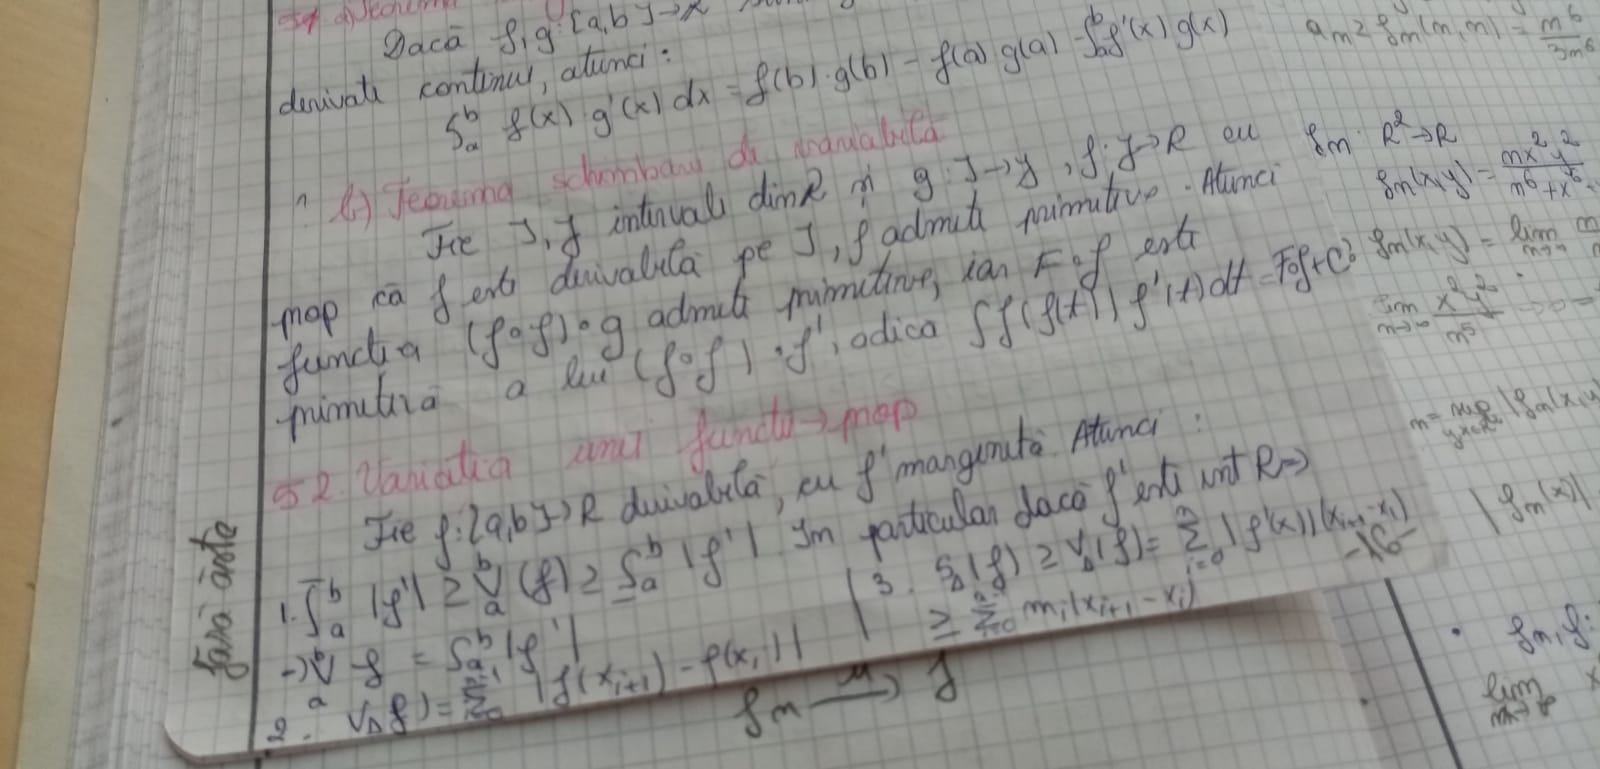 Dacă f,g:[a,b]→R
derivate continue, atunci:
∫ₐᵇ f(x)·g'(x) dx = f(b)·g(b) - f(a) g(a) - ∫ₐᵇ f'(x) g(x)
b) Teorema schimbarii de variabilă
Fie I, J intervale din R și g: I→J, f: J→R cu
prop că f este derivabilă pe I, f admite primitive. Atunci
funcția (f∘f)·g admite primitive, iar F∘f este
primitivă a lui (f∘f)·f', adica ∫f(f(t)) f'(t)dt = F∘f+C
§2. Variatia unei functii → prop
Fie f:[a,b]→R derivabilă, cu f' marginită. Atunci:
1. ∫ₐᵇ |f'| ≥ Vₐᵇ(f) ≥ ∫ₐᵇ |f'| In particular dacă f' este int R ⇒
⇒ Vₐᵇ f = ∫ₐᵇ |f'|
2. V_Δ(f) = Σ |f(xᵢ₊₁) - f(xᵢ)|
3. S_Δ(f) ≥ V_Δ(f) = Σ |f'(x)|(xᵢ₊₁-xᵢ)
≥ Σ mᵢ(xᵢ₊₁-xᵢ)
-16-
fără asta
fₙ →ᵘ f
fₙ(n,n) =
fₙ: R²→R
fₙ(x,y) = nx²y²
n⁶+x⁶
fₙ(x,y) = lim
n→∞
lim x²y²
n→∞ n⁵
|fₙ(x)|
fₙ,f:
lim